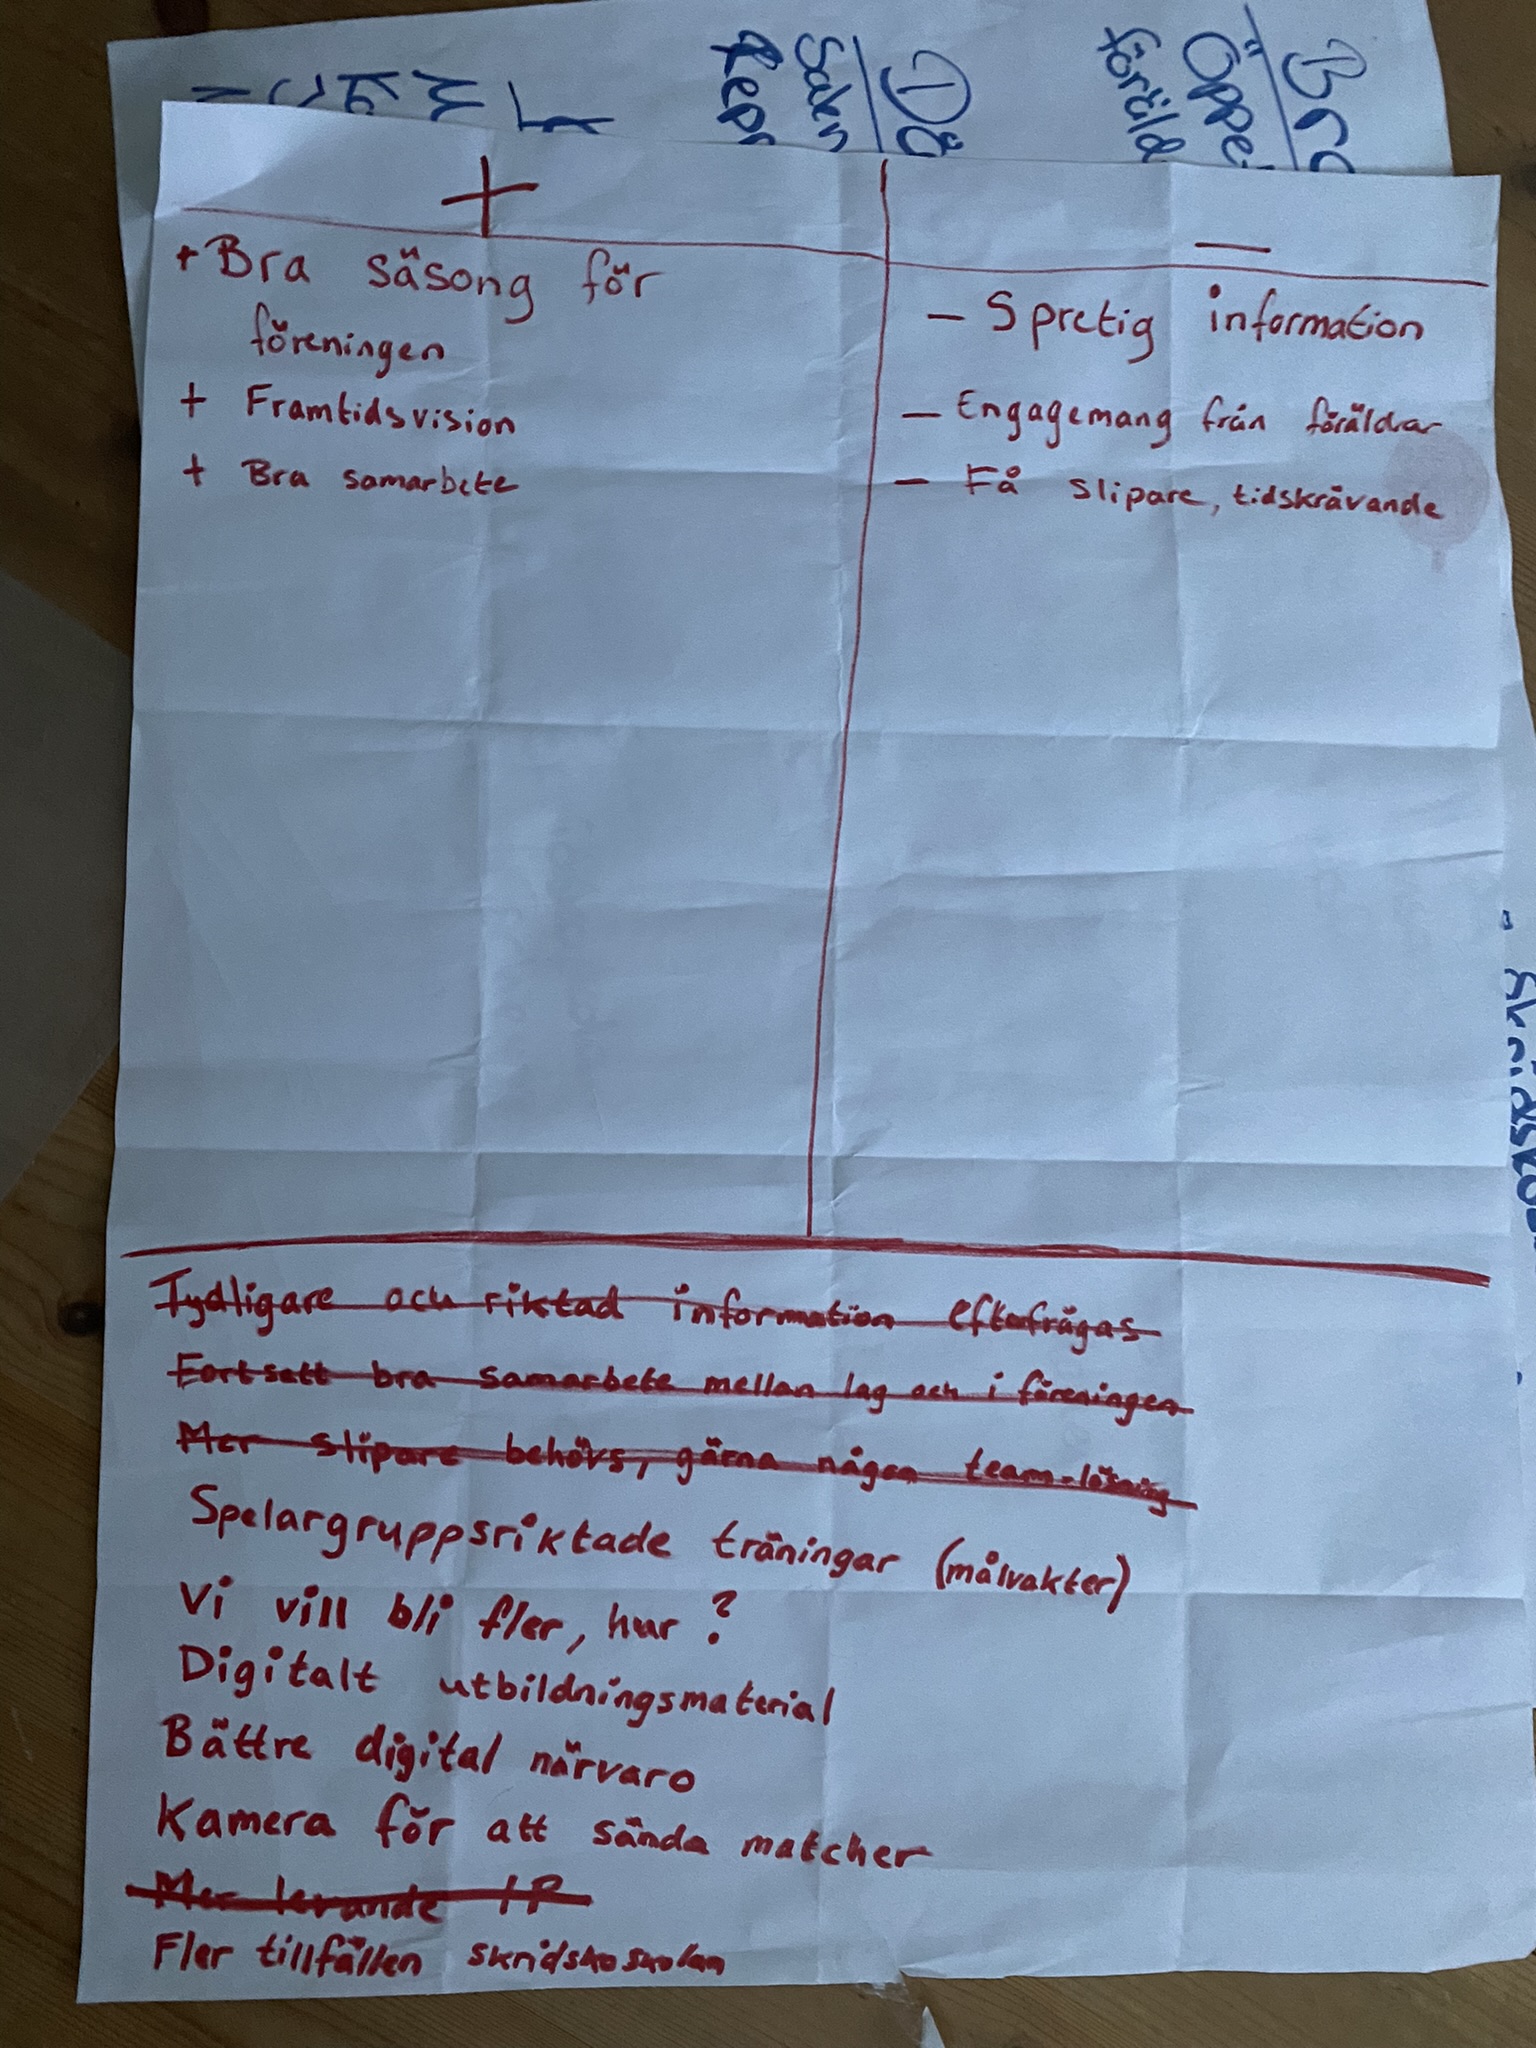 +
+ Bra säsong för
föreningen
+ Framtidsvision
+ Bra samarbete
—
- Spretig information
- Engagemang från föräldrar
- Få slipare, tidskrävande
Tydligare och riktad information efterfrågas
Fortsätt bra samarbete mellan lag och i föreningen
Mer slipare behövs, gärna någon team-lösning
Spelargruppsriktade träningar (målvakter)
Vi vill bli fler, hur?
Digitalt utbildningsmaterial
Bättre digital närvaro
Kamera för att sända matcher
Mer levande IP
Fler tillfällen skridskoskolan